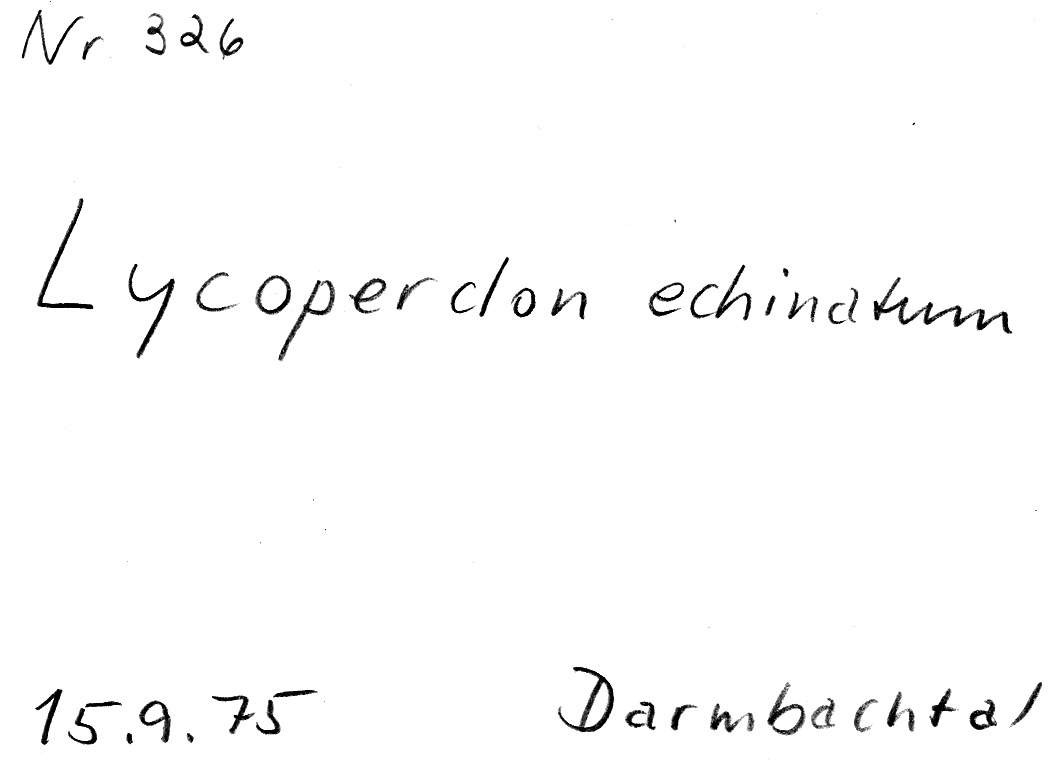 Nr 326
Lycoperdon echinatum
15.9.75 Darmbachtal